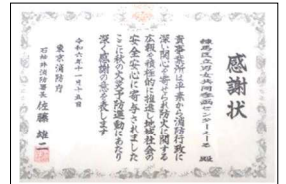 感謝状
練馬区立男女共同参画センターえーる 殿
貴事業所は平素から消防行政に
深い関心を寄せられ防火に関する
広報を積極的に推進し地域社会の
安全・安心に寄与されました
ここに秋の火災予防運動にあたり
深く感謝の意を表します
令和六年十一月十五日
東京消防庁
石神井消防署長 佐藤 雄二